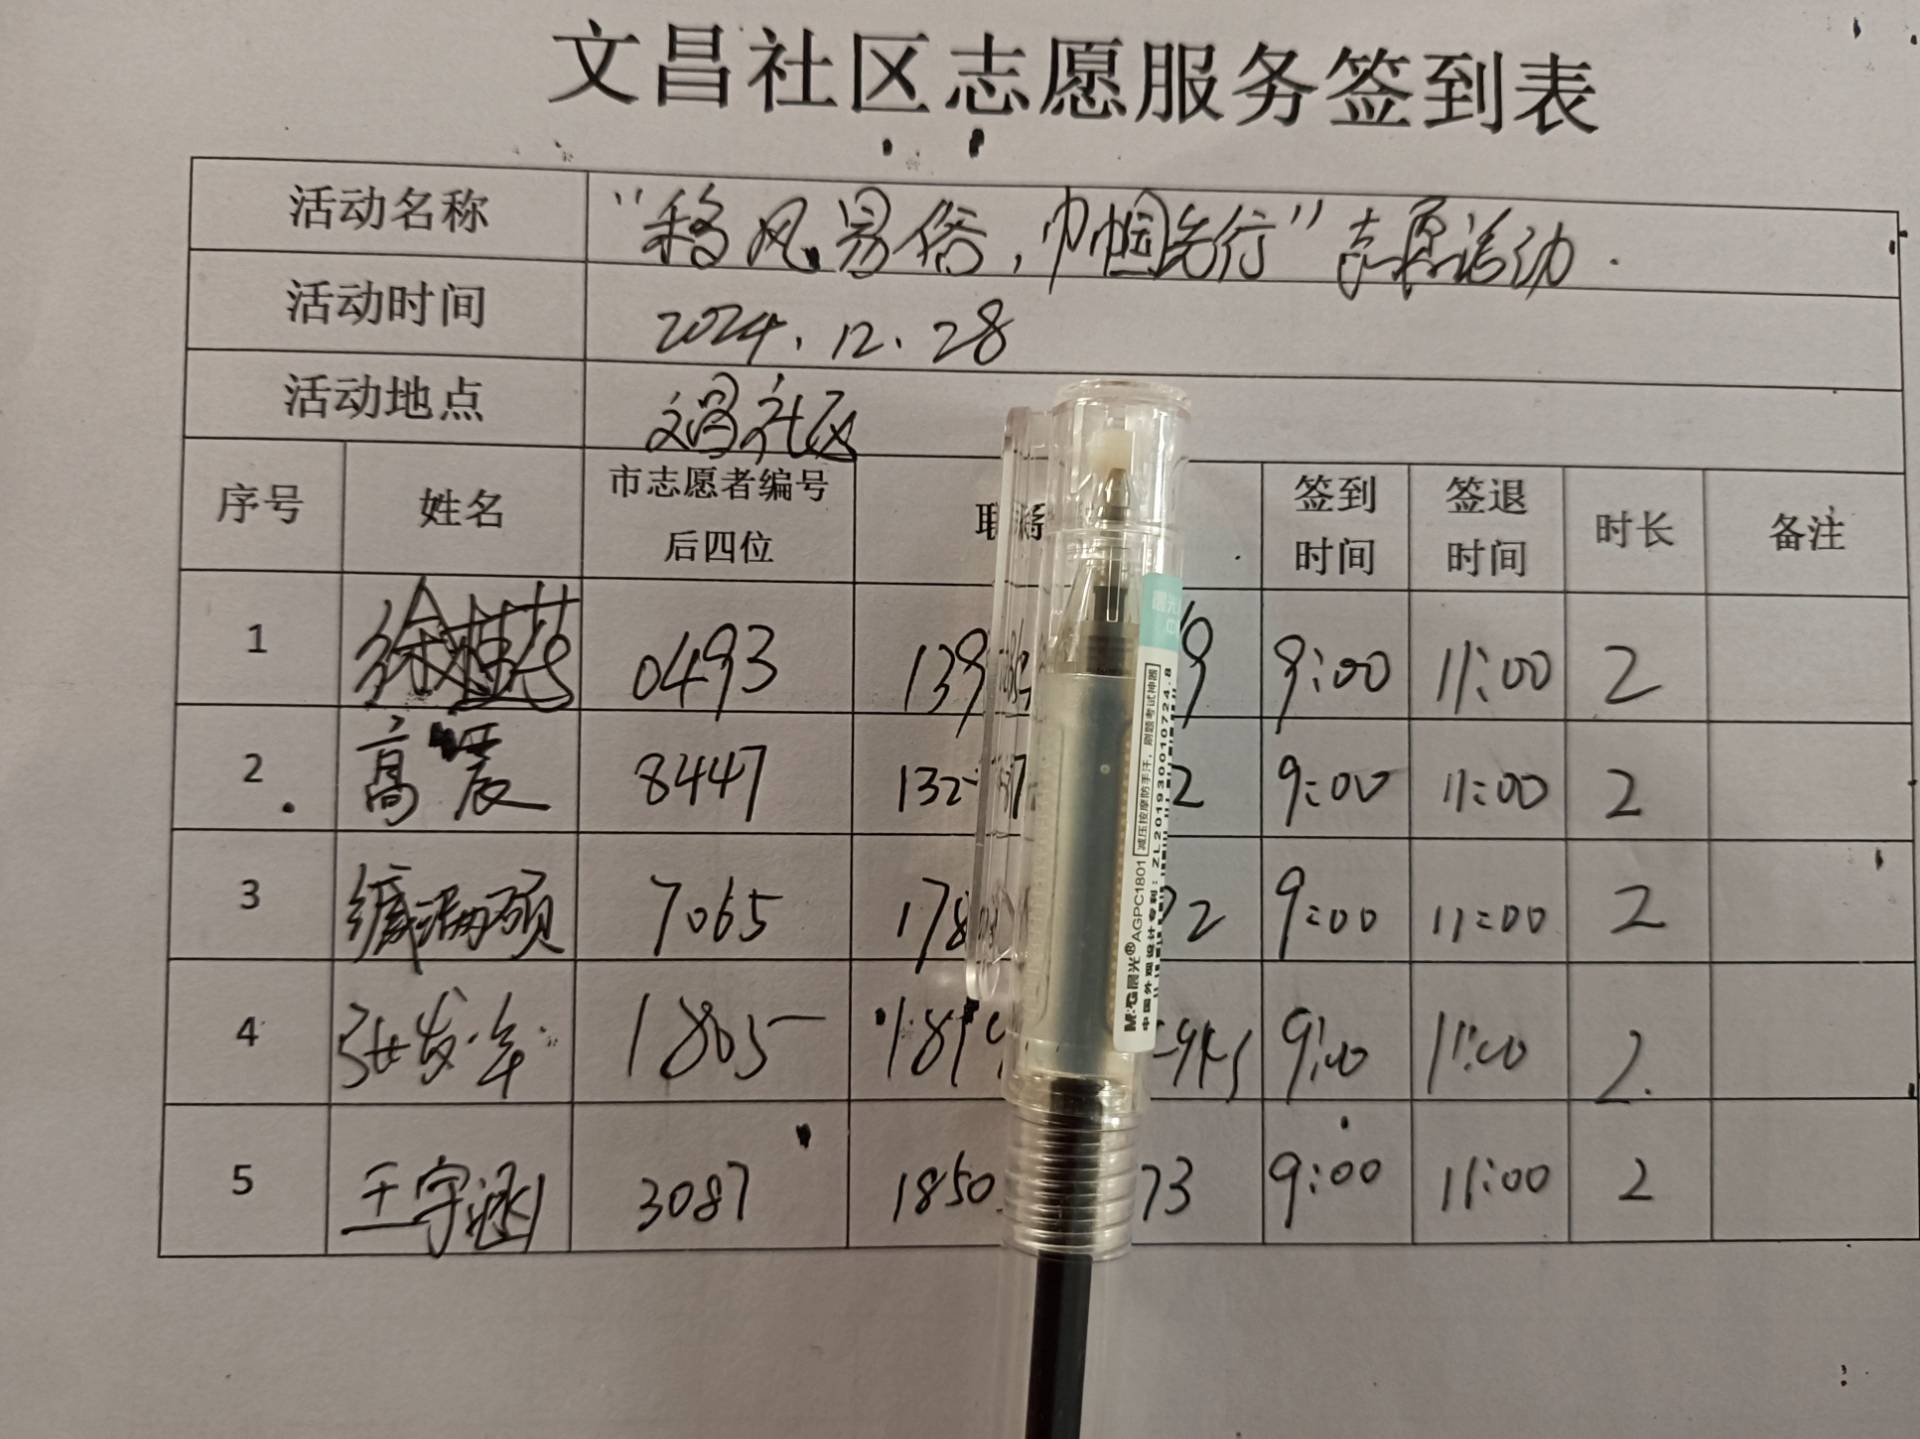 文昌社区志愿服务签到表
活动名称 “移风易俗，巾帼先行”志愿活动.
活动时间 2024.12.28
活动地点 文昌社区
序号 姓名 市志愿者编号后四位 联系 签到时间 签退时间 时长 备注
1 0493 139 9 9:00 11:00 2
2 高 8447 132 2 9:00 11:00 2
3 7065 178 2 9:00 11:00 2
4 张发年 1865 181 9:00 11:00 2.
5 王宇涵 3087 1850 73 9:00 11:00 2
M&G晨光®AGPC1801 减压按摩防手汗，刷题考试神器
中国外观设计专利：ZL201930010724.8